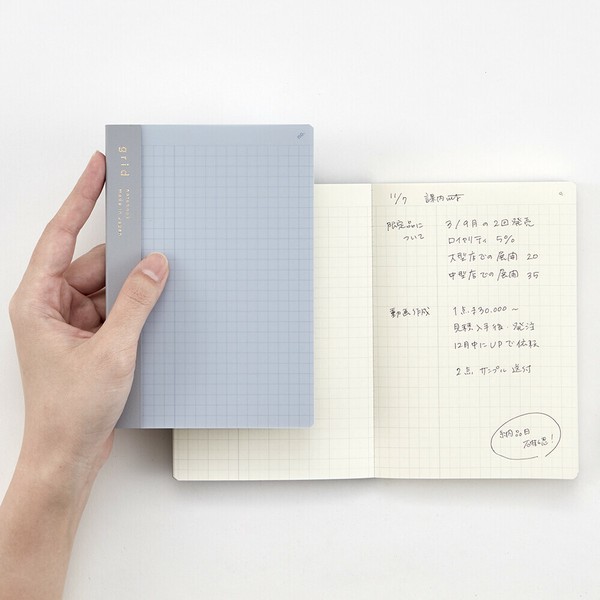 grid
11/7 課内
限定品に
ついて
3/9月の2回発売
ロイヤリティ 5%
大型店での展開 20
中型店での展開 35
動画作成
1点¥30,000〜
見積入手後・発注
12月中にUPで依頼
2点 サンプル送付
納品日
確認!